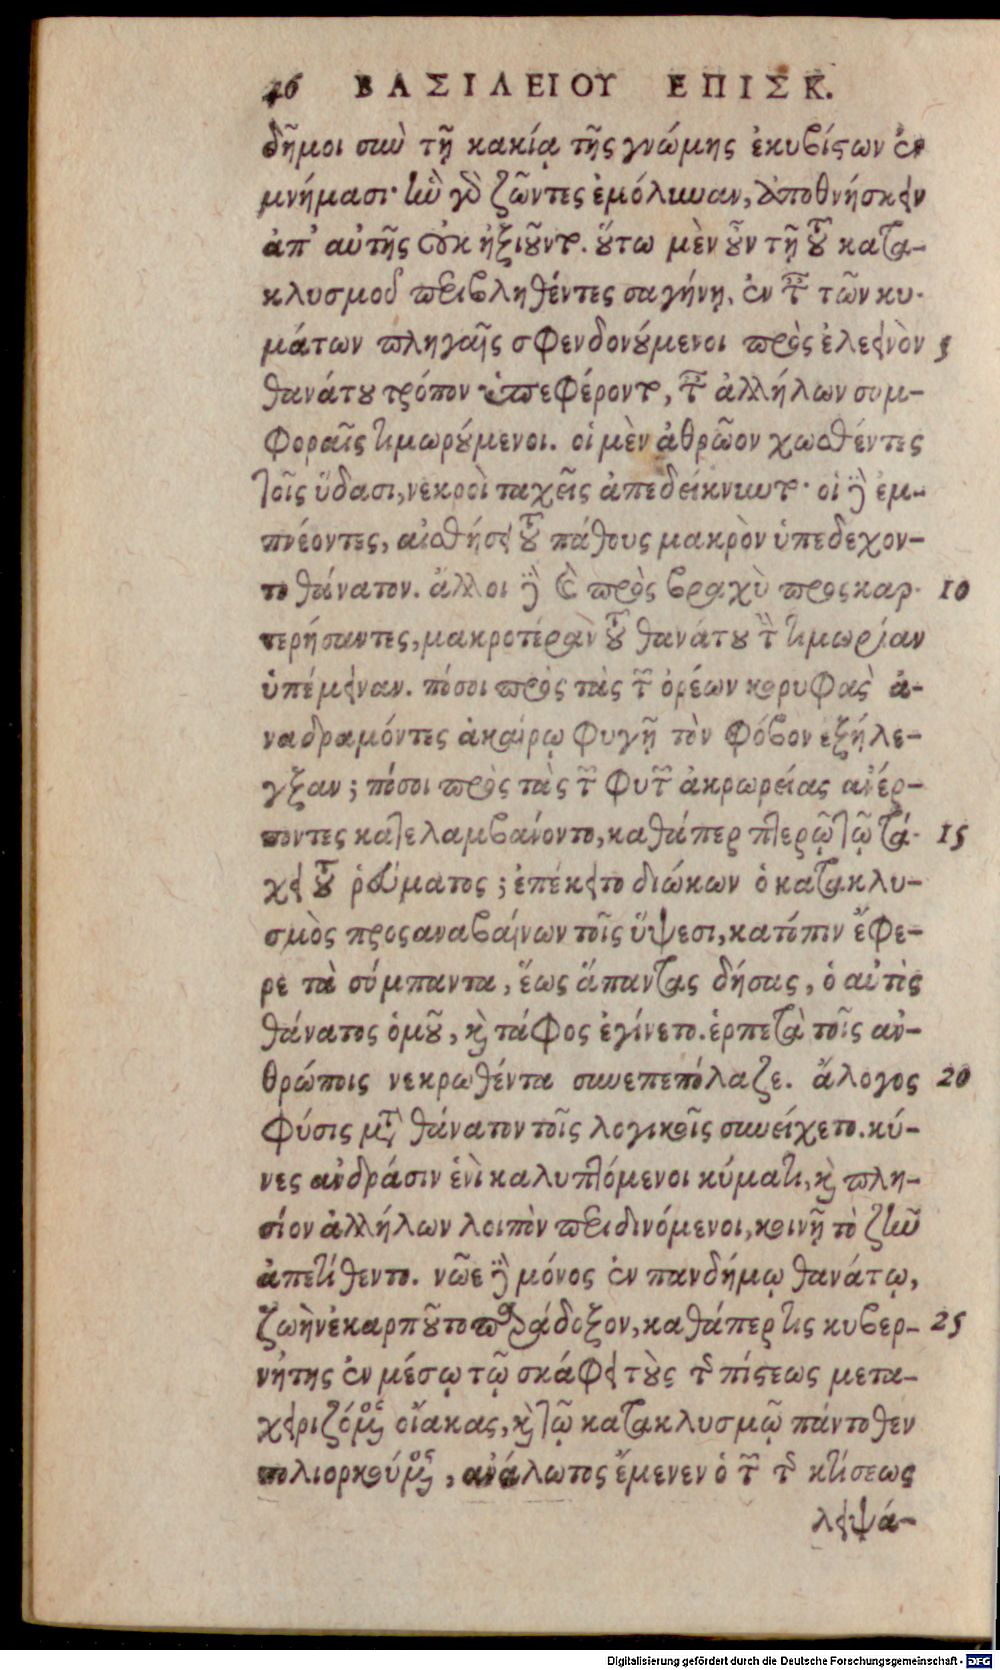 46 ΒΑΣΙΛΕΙΟΥ ΕΠΙΣΚ.
δῆμοι σὺν τῇ κακίᾳ τῆς γνώμης ἐκυβίςων ἐν
μνήμασι· ἣν γὸ ζῶντες ἐμόλυναν, ἀποθνήσκειν
ἀπ' αὐτῆς οὐκ ἠξιοῦντο. ὅτω μὲν ὖν τῇ τοῦ κατα-
κλυσμοῦ περιβληθέντες σαγήνῃ, ἐν ταῖς τῶν κυ-
μάτων πληγαῖς σφενδονούμενοι πρὸς ἐλεεινὸν 5
θανάτου τρόπον ὑπεφέροντο, ταῖς ἀλλήλων συμ-
φοραῖς τιμωρούμενοι. οἱ μὲν ἀθρῶον χωσθέντες
τοῖς ὕδασι, νεκροὶ ταχεῖς ἀπεδείκνυντο· οἱ δὲ ἐμ-
πνέοντες, αἰσθήσει τοῦ πάθους μακρὸν ὑπεδεχον-
το θάνατον. ἄλλοι δὲ καὶ πρὸς βραχὺ προςκαρ- 10
τερήσαντες, μακροτέραν τοῦ θανάτου τὴν τιμωρίαν
ὑπέμειναν. πόσοι πρὸς τὰς τῶν ὀρέων κορυφὰς ἀ-
ναδραμόντες ἀκαίρῳ φυγῇ τὸν φόβον ἐξήλε-
γξαν; πόσοι πρὸς τὰς τῶν φυτῶν ἀκρωρείας ἀνέρ-
ποντες κατελαμβάνοντο, καθάπερ πτερῷ τῷ τά- 15
χει τοῦ ῥεύματος; ἐπέκειτο διώκων ὁ κατακλυ-
σμὸς προςαναβαίνων τοῖς ὕψεσι, κατόπιν ἔφε-
ρε τὰ σύμπαντα, ἕως ἅπαντας δήσας, ὁ αὐτὸς
θάνατος ὁμοῦ, καὶ τάφος ἐγίνετο. ἑρπετὰ τοῖς ἀν-
θρώποις νεκρωθέντα συνεπεπόλαζε. ἄλογος 20
φύσις μετὰ θάνατον τοῖς λογικοῖς συνείχετο. κύ-
νες ἀνδράσιν ἑνὶ καλυπτόμενοι κύματι, καὶ πλη-
σίον ἀλλήλων λοιπὸν περιδινόμενοι, κοινῇ τὸ ζῆν
ἀπετίθεντο. νῶε δὲ μόνος ἐν πανδήμῳ θανάτῳ,
ζωὴν ἐκαρποῦτο παράδοξον, καθάπερ τις κυβερ- 25
νήτης ἐν μέσῳ τῷ σκάφει τοὺς τῆς πίςεως μετα-
χειριζόμενος οἴακας, καὶ τῷ κατακλυσμῷ πάντοθεν
πολιορκούμενος, ἀνάλωτος ἔμενεν ὁ τῶν τῆς κτίσεως
λειψά-
Digitalisierung gefördert durch die Deutsche Forschungsgemeinschaft - DFG